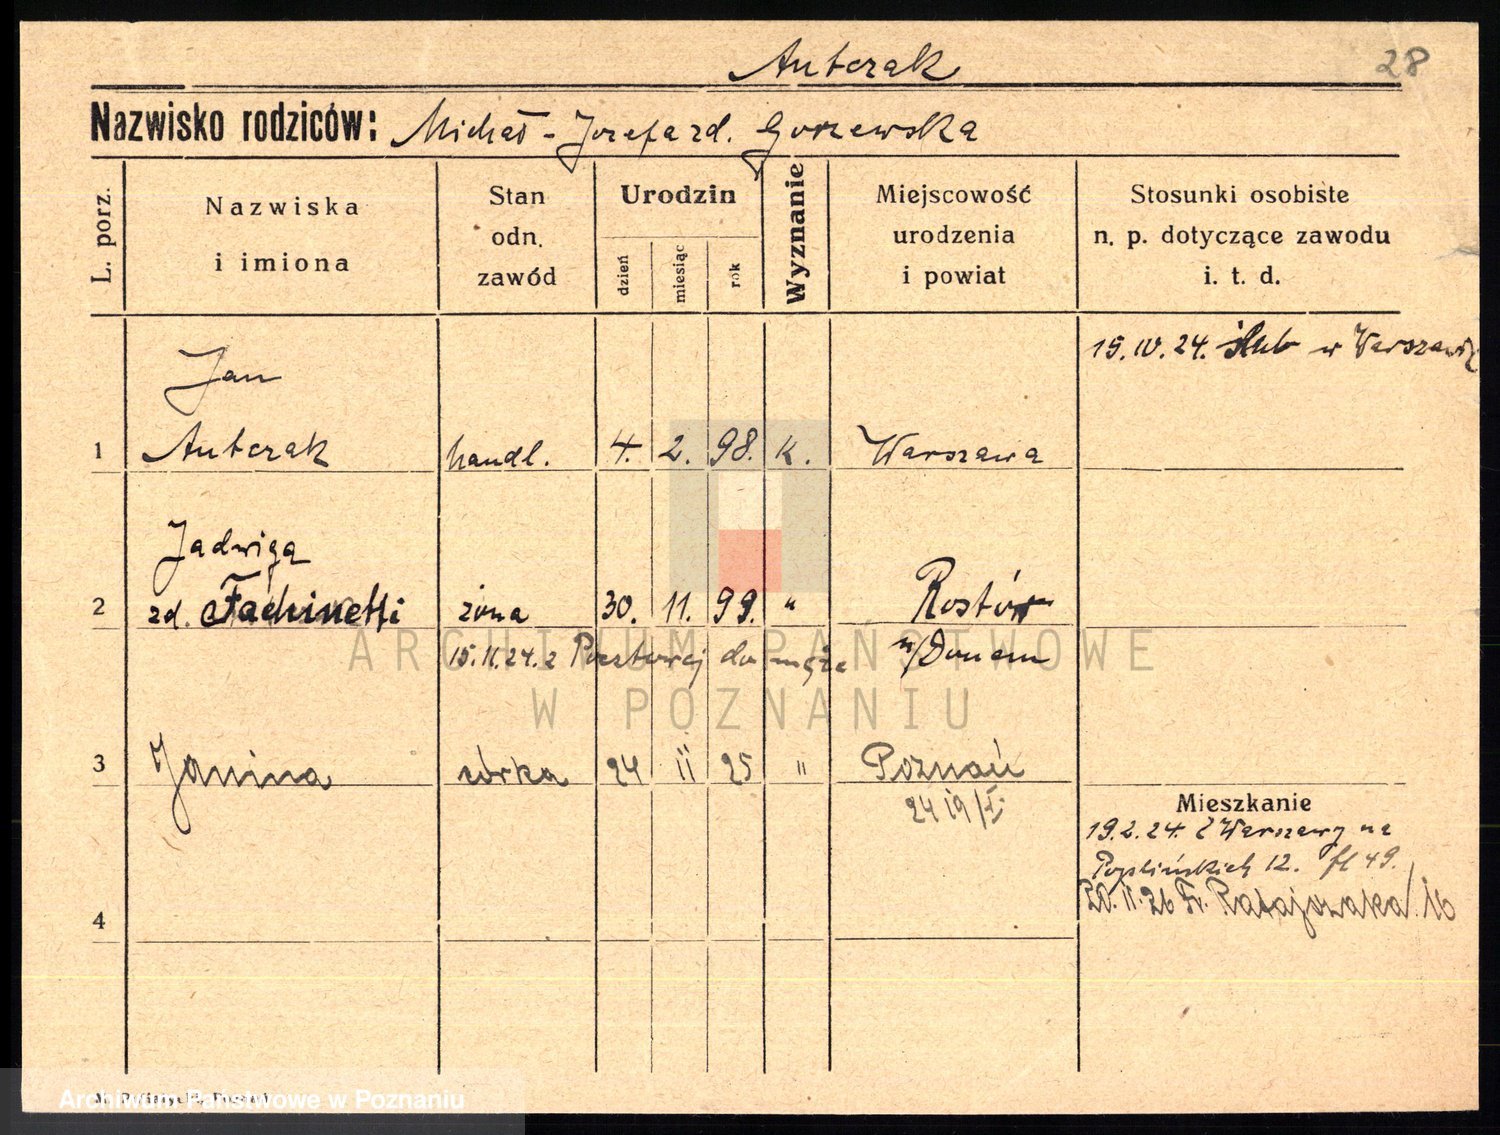 Antczak
28
Nazwisko rodziców: Michał - Józefa zd. Gorzewska
L. porz.
Nazwiska
i imiona
Stan
odn.
zawód
Urodzin
dzień
miesiąc
rok
Wyznanie
Miejscowość
urodzenia
i powiat
Stosunki osobiste
n. p. dotyczące zawodu
i. t. d.
15.IV.24. ślub w Warszawie
Jan
1 Antczak handl. 4. 2. 98. K. Warszawa
Jadwiga
2 zd. Fachinetti żona 30. 11. 99. " Rostów
15.11.24. z do męża n/Donem
3 Janina córka 24 II 25 " Poznań
Mieszkanie
19.2.24. z Warszawy na
12. 49.
Fr. Ratajczaka 16
4
ARCHIWUM PAŃSTWOWE
W POZNANIU
Archiwum Państwowe w Poznaniu